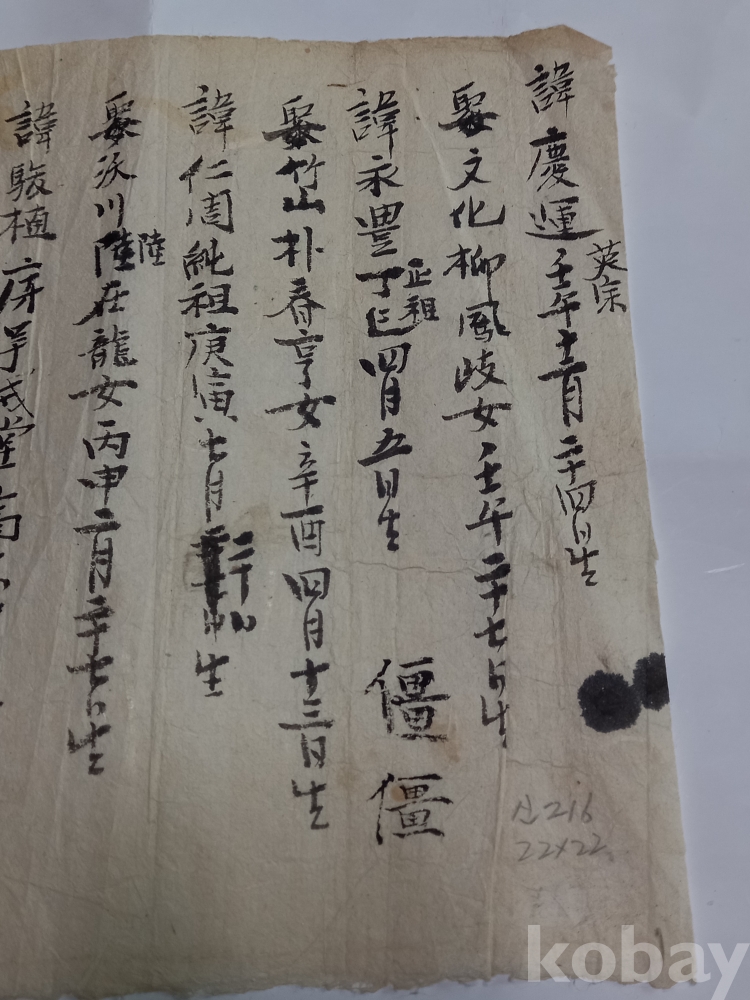 諱慶運 英宗 壬午十二月二十四日生
娶文化柳鳳岐女壬午二十七日生
諱永豊 正祖 丁巳四月五日生
僵僵
娶竹山朴春亨女辛酉四月十三日生
諱仁周純祖庚寅七月二十日生
娶沃川陸 陸 在龍女丙申二月二十七日生
諱駿植
산216
22×22
kobay